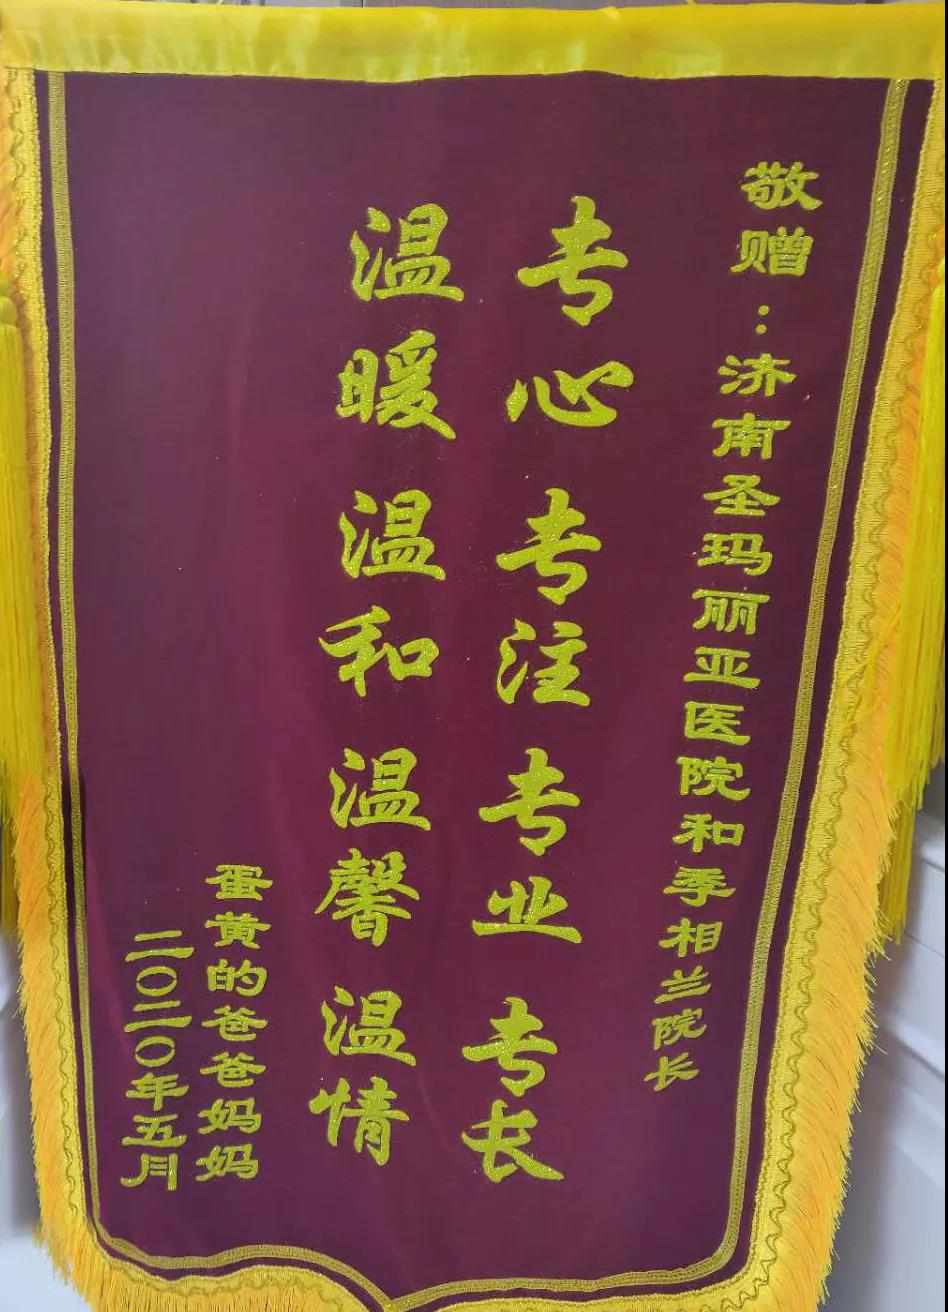 敬赠:济南圣玛丽亚医院和季相兰院长
专心 专注 专业 专长
温暖 温和 温馨 温情
蛋黄的爸爸妈妈
二〇二〇年五月